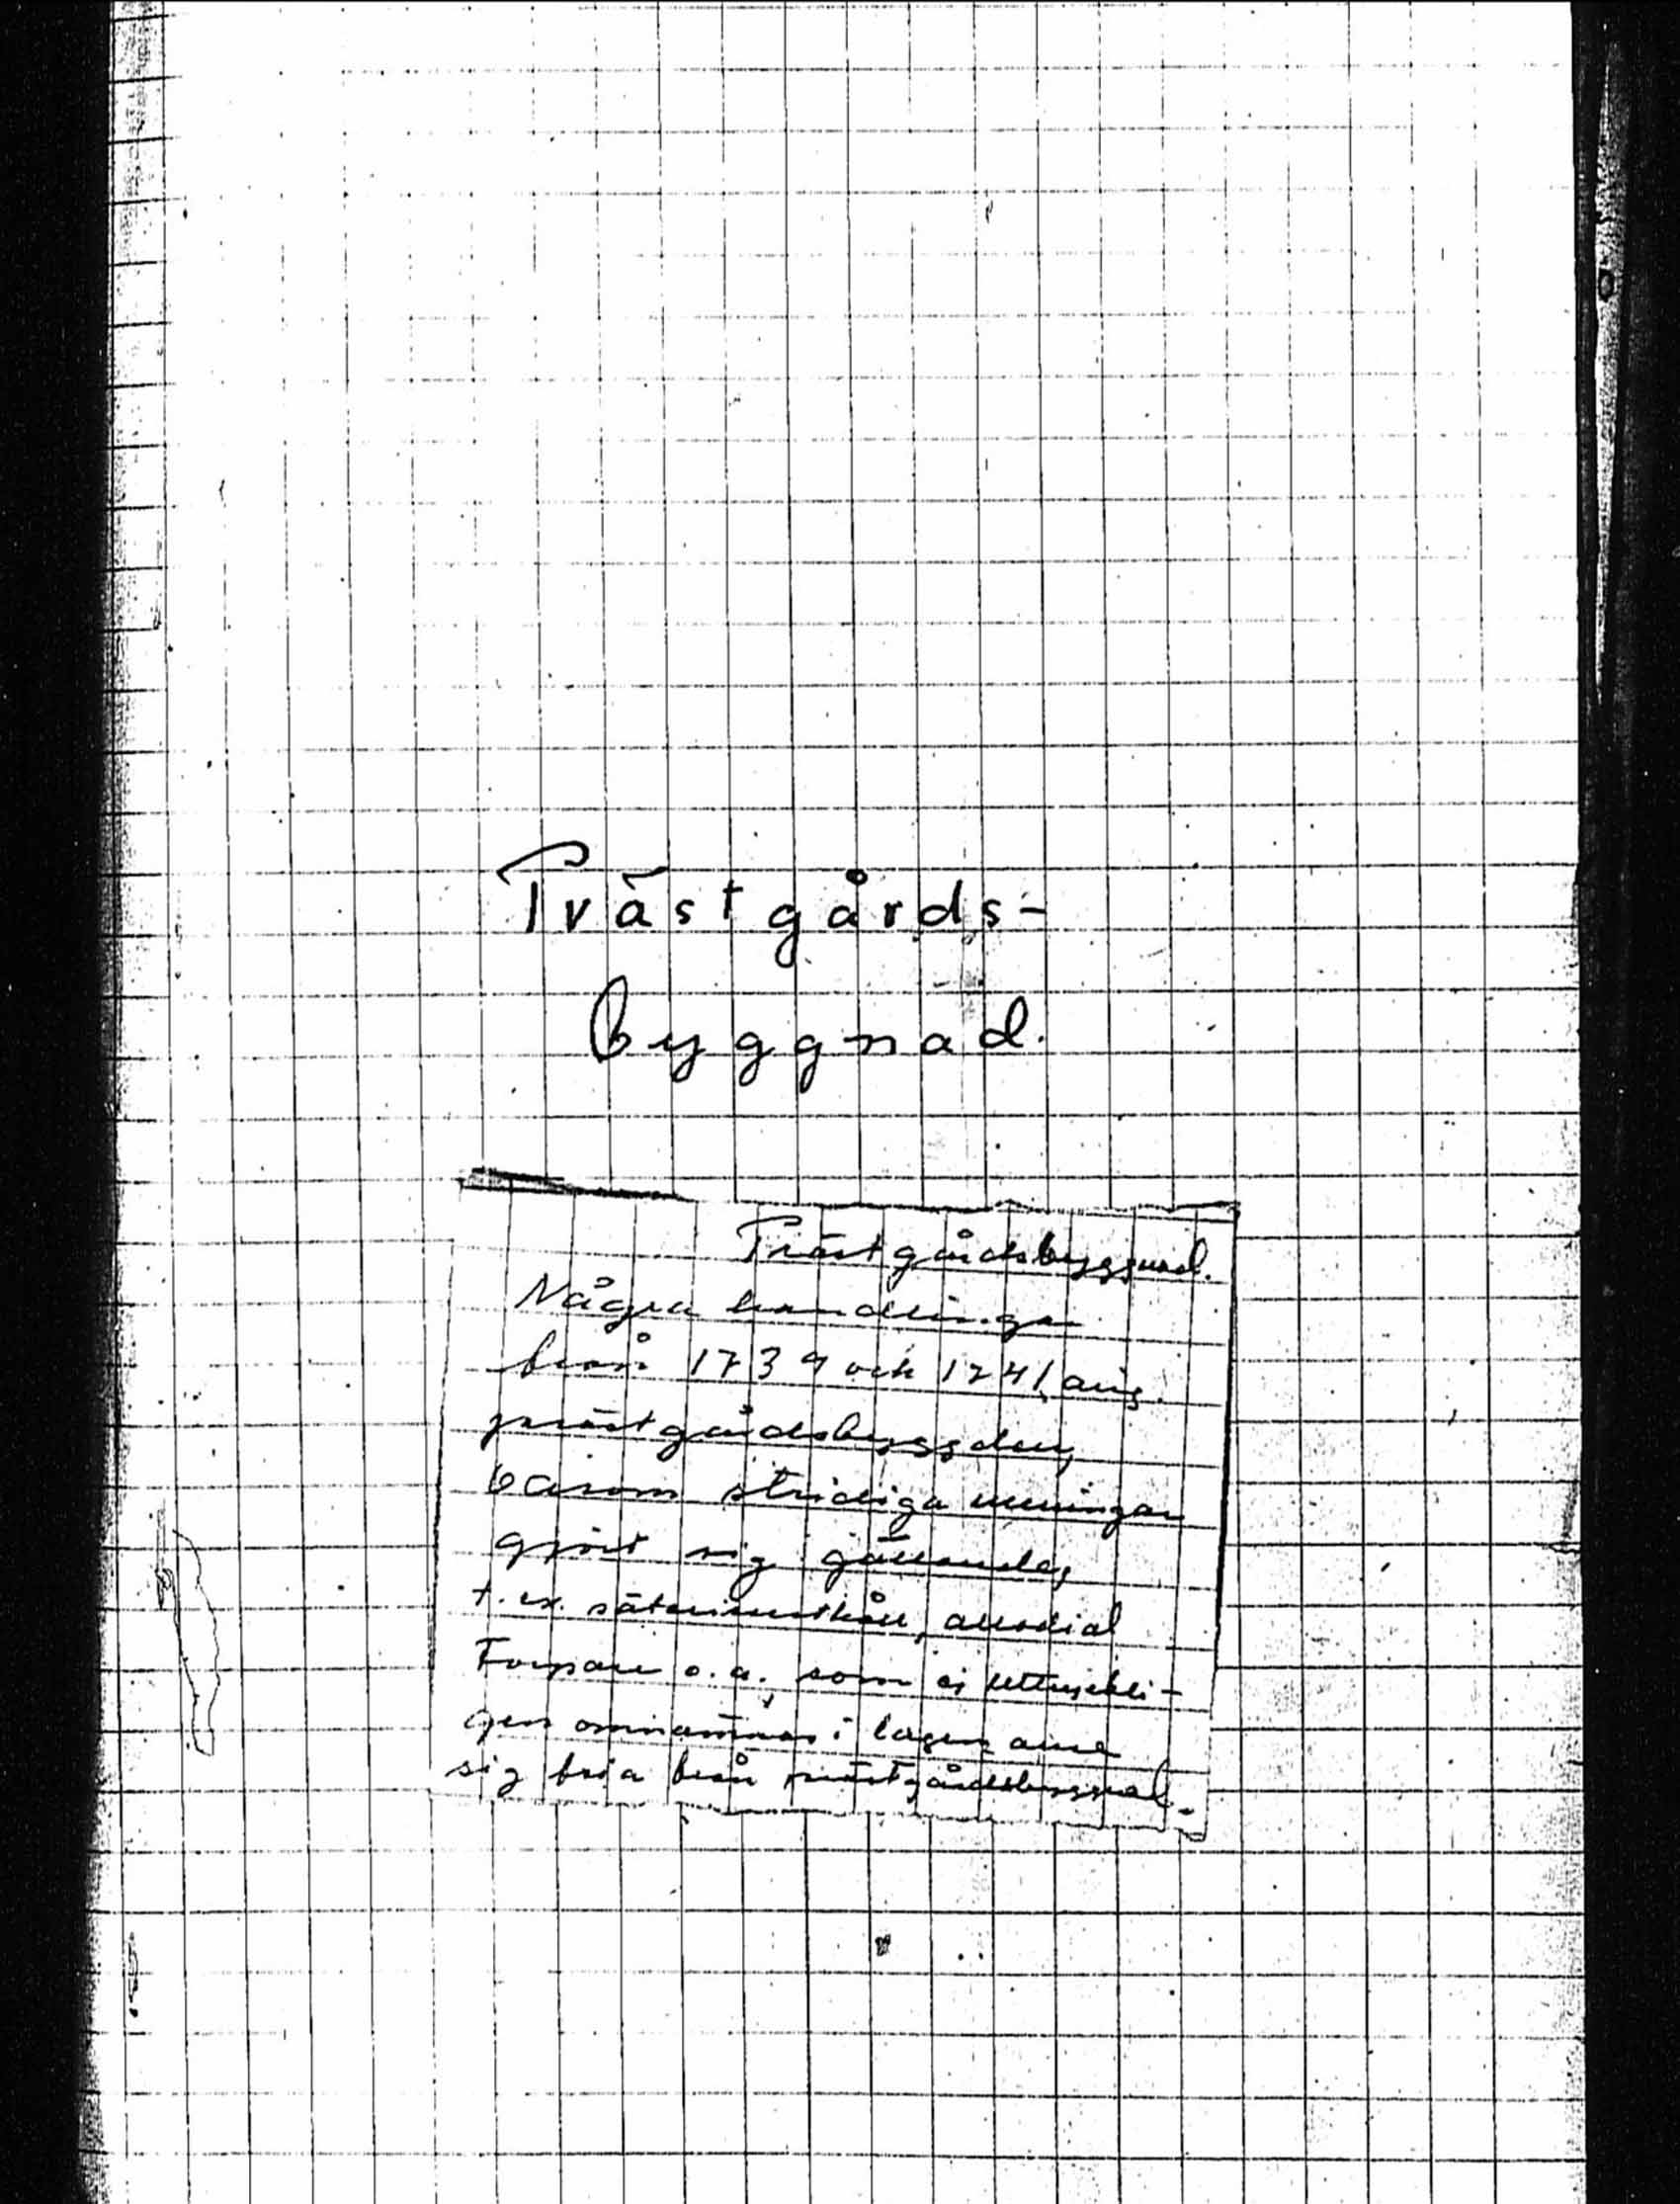 Prästgårds-
byggnad.
Prästgårdsbyggnad.
Några handlingar
från 1739 och 1741 ang.
prästgårdsbyggden,
varom stridiga meningar
gjort sig gällande,
t. ex. säterimetkåll, allodial
Torpare o. a., som ej uttryckli-
gen omnämnas i lagen anse
sig fria från prästgårdsbyggnad.